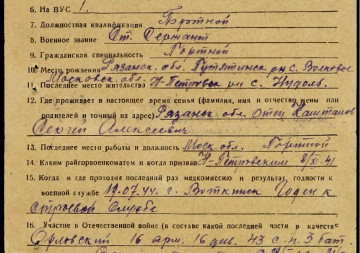 6. На ВУС 1.
7. Должностная квалификация Портной
8. Военное звание Ст. Сержант
9. Гражданская специальность Портной
10. Место рождения Рязанск. обл. Путятинск рн с. Волково
Московск. обл.
11. Последнее место жительства Н-Петровск рн с. Нудоль.
12. Где проживает в настоящее время семья (фамилия, имя и отчество жены или
родителей и точный их адрес) Рязанск. обл. отец Каштанов
Сергей Алексеевич
13. Последнее место работы и должность Моск. обл. Портной
14. Каким райгорвоенкоматом и когда призван Н-Петровским 8/XI-41
15. Когда и где проходил последний раз медкомиссию и результат, годности к
военной службе 19.07.44. г. Воткинск Годен к
строевой службе
16. Участие в Отечественной войне (в составе какой последней части в качеств
Орловский 16 арм. 16 див. 43 с.п. 3 бат.